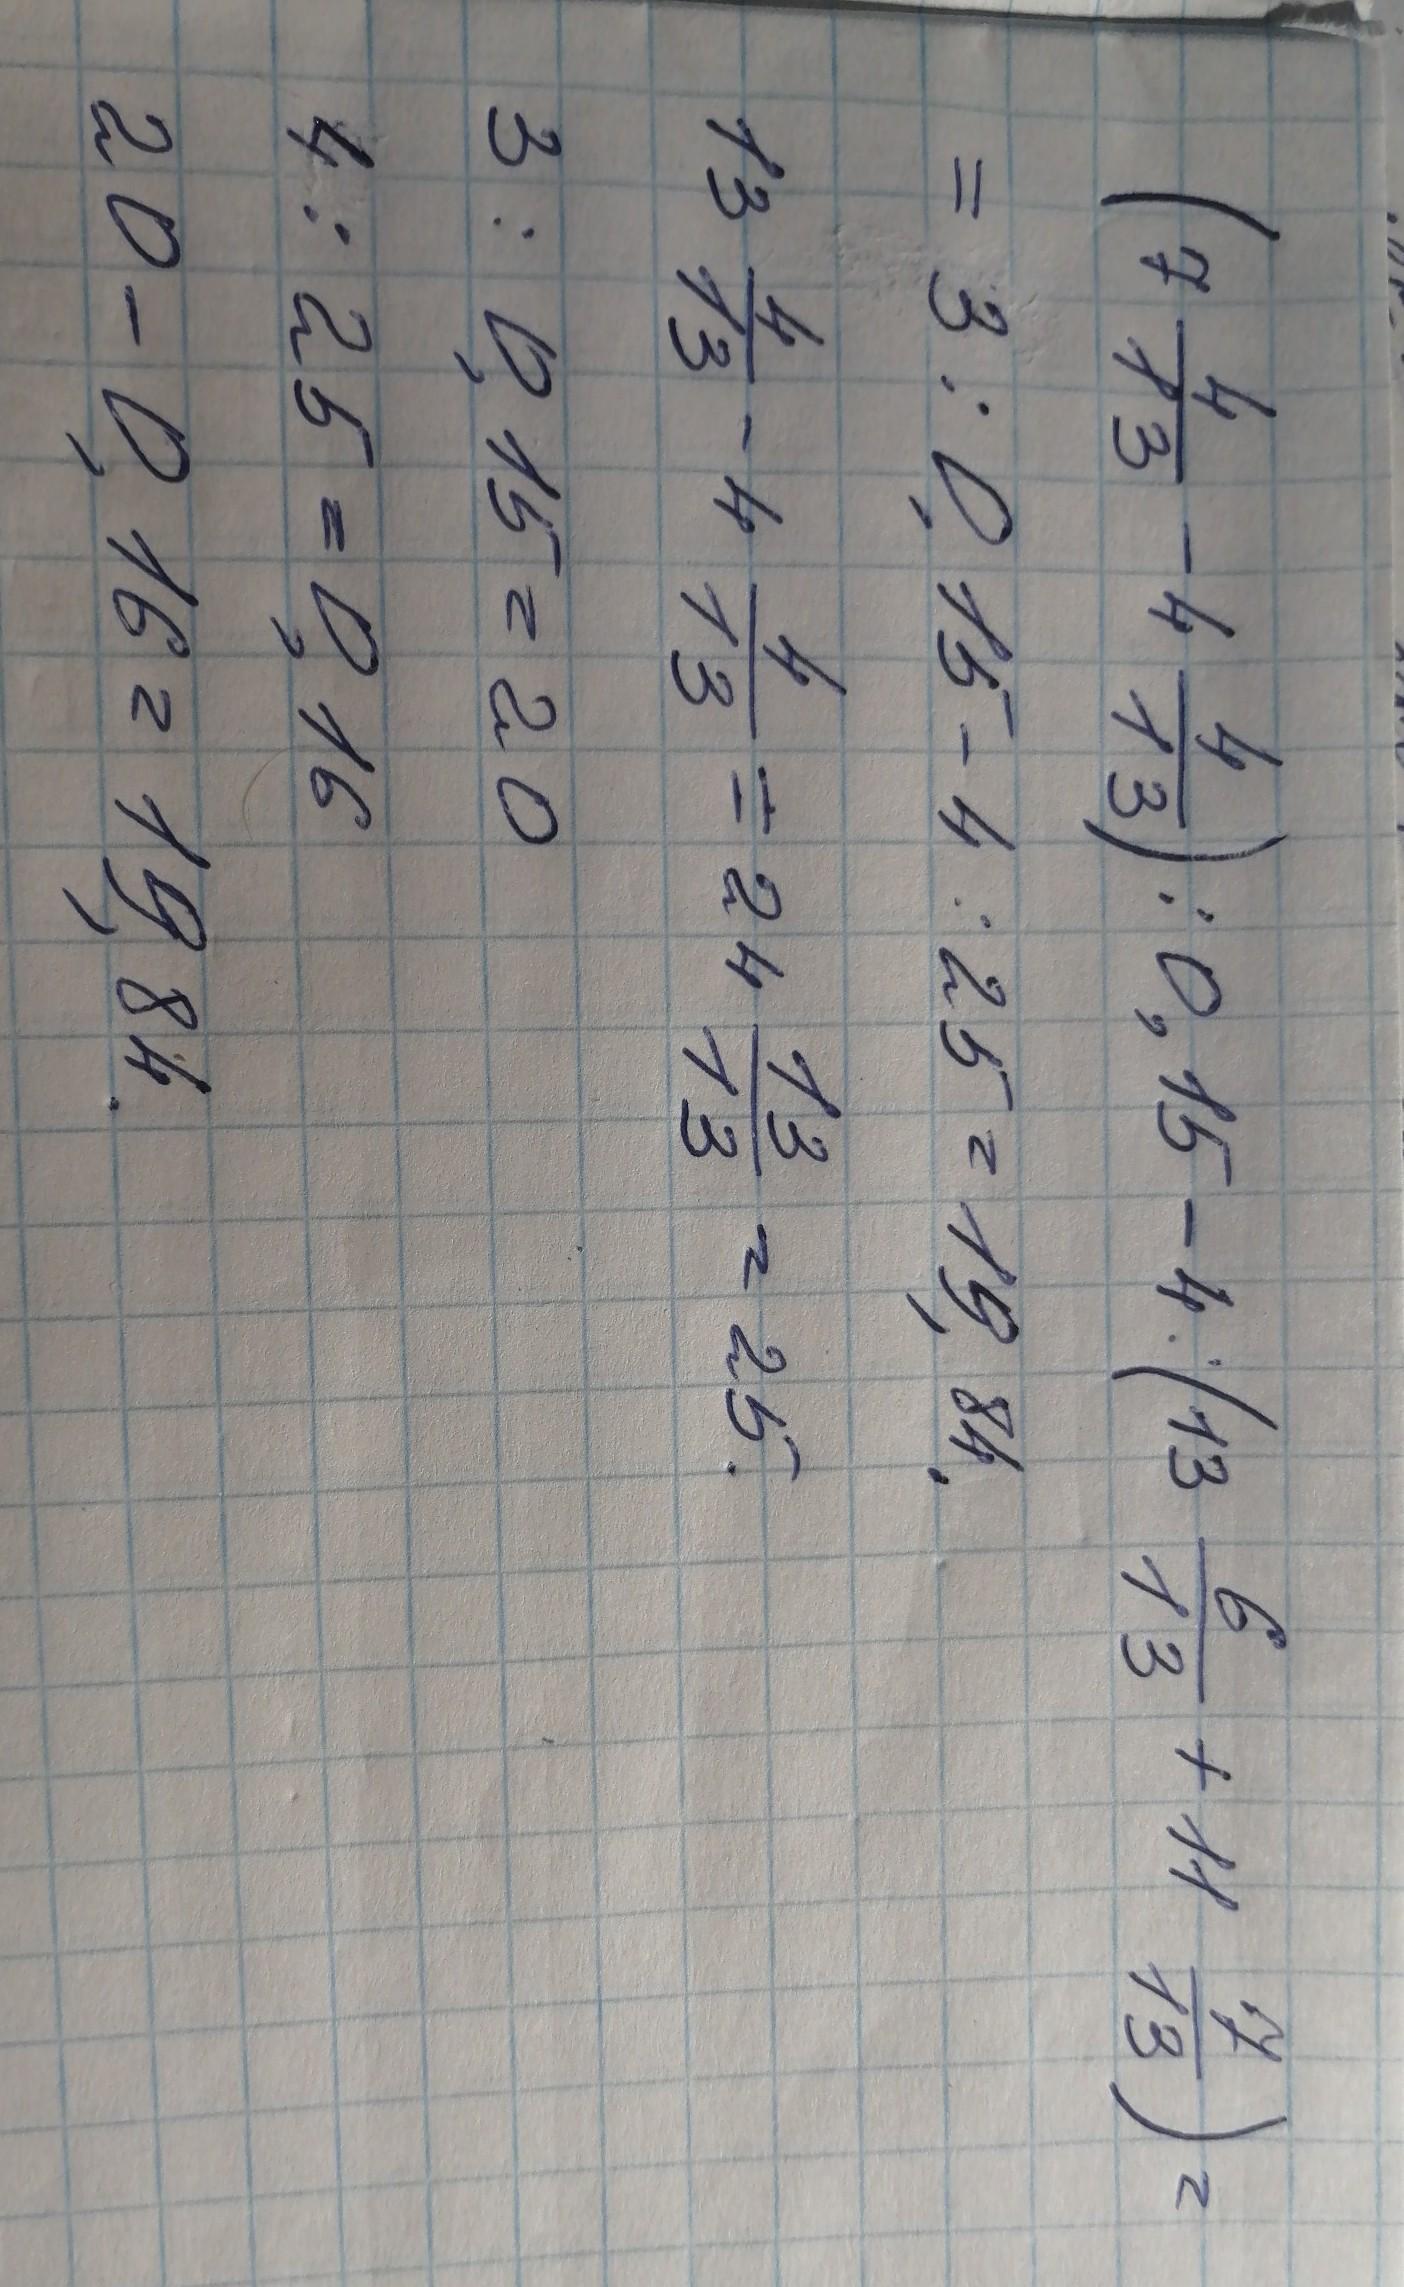 (7 4/13 - 4 4/13) : 0,15 - 4 : (13 6/13 + 11 7/13) =
= 3 : 0,15 - 4 : 25 = 19,84.
13 4/13 - 4 4/13 = 24 13/13 = 25.
3 : 0,15 = 20
4 : 25 = 0,16
20 - 0,16 = 19,84.